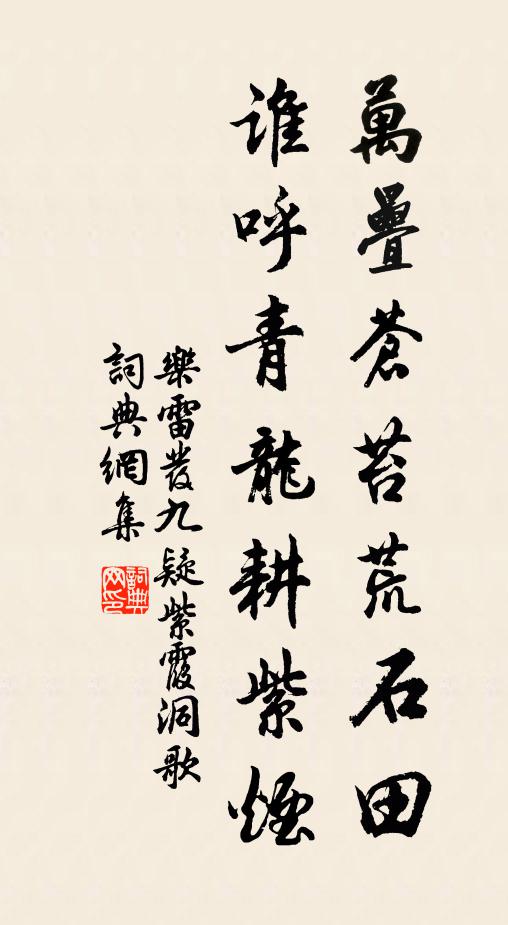 萬疊蒼苔荒石田
誰呼青龍耕紫煙
樂雷發九疑紫霞洞歌
詞典網集
詞典網印